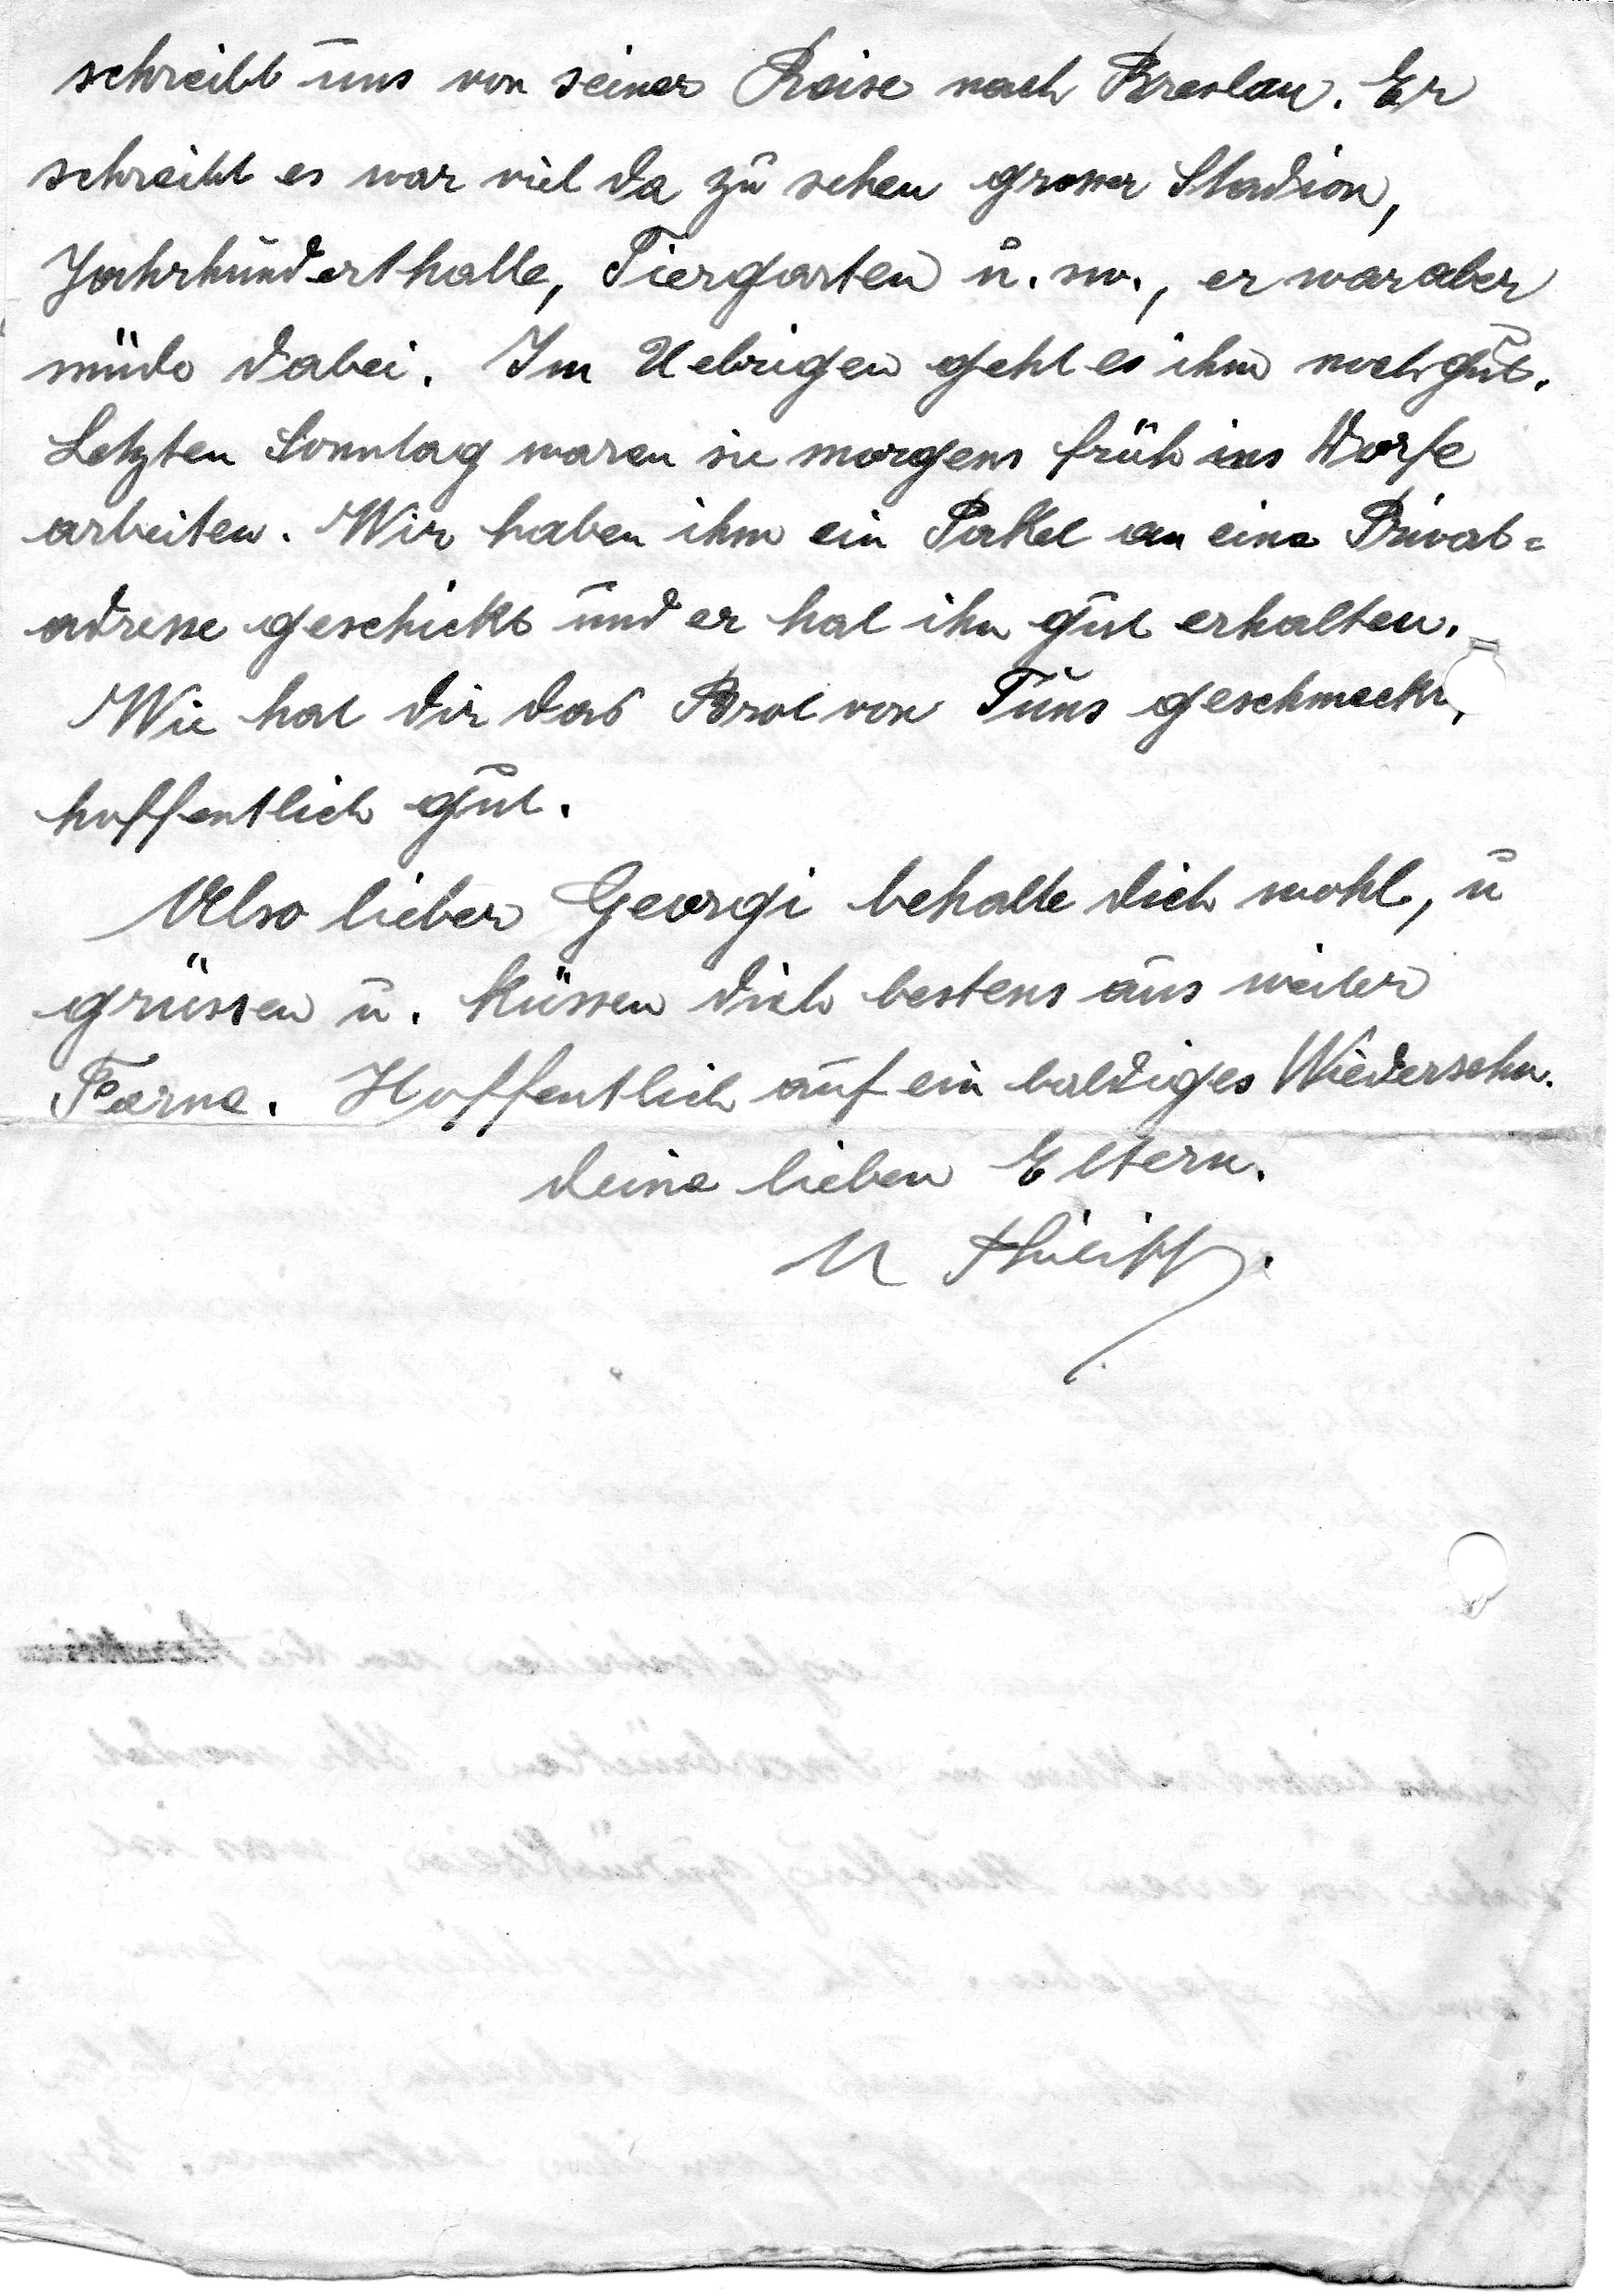 schreibt uns von seiner Reise nach Breslau. Er
schreibt es war viel da zu sehen grosser Stadion,
Jahrhunderthalle, Tiergarten u. sw., er war aber
müde dabei. Im Uebrigen geht es ihm noch gut.
Letzten Sonntag waren sie morgens früh ins Dorfe
arbeiten. Wir haben ihm ein Paket an eine Privat=
adresse geschickt und er hat ihn gut erhalten.
Wie hat dir das Brot von Tuns geschmeckt,
hoffentlich gut.
Also lieber Georgi behalte dich wohl, u
grüssen u. küssen dich bestens aus weiter
Ferne. Hoffentlich auf ein baldiges Wiedersehn.
deine lieben Eltern.